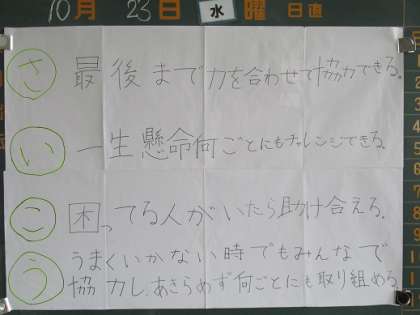 10月23日水曜日直
さ 最後まで力を合わせて協力できる。
い 一生懸命何ごとにもチャレンジできる。
こ 困ってる人がいたら助け合える。
う うまくいかない時でもみんなで
協力し、あきらめず何ごとにも取り組める。